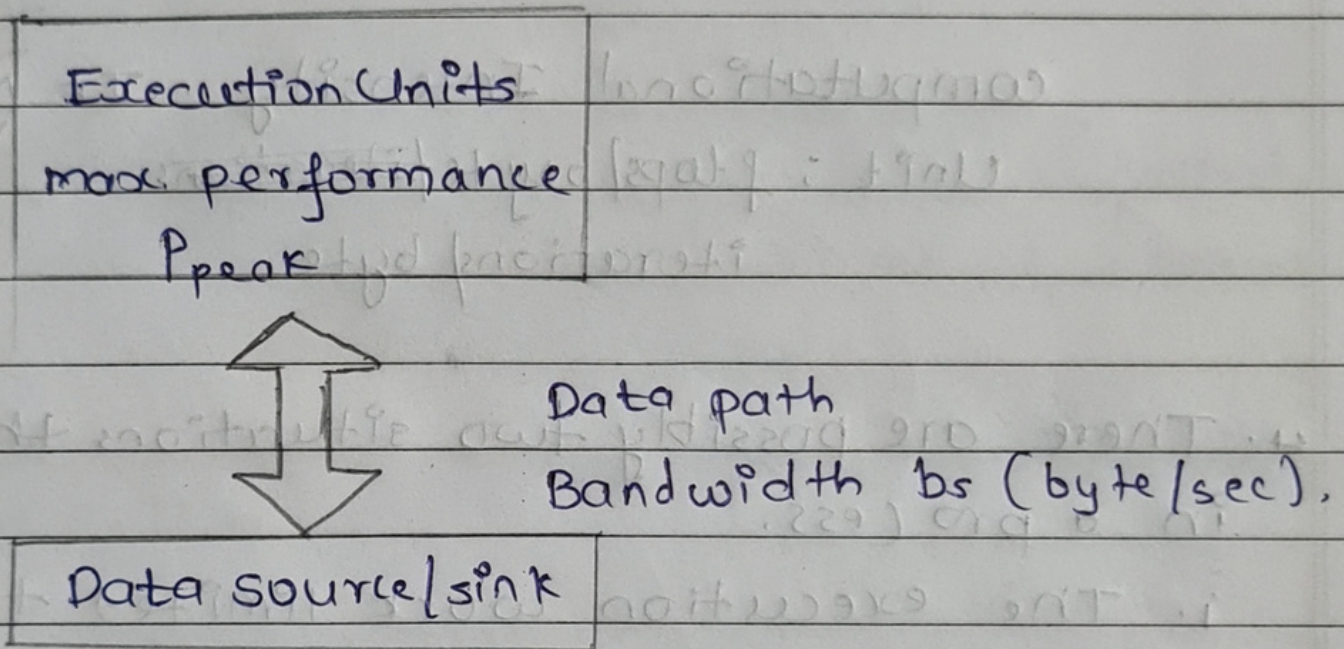 Execution Units
max. performance
Ppeak
Data path
Bandwidth bs (byte/sec).
Data source/sink